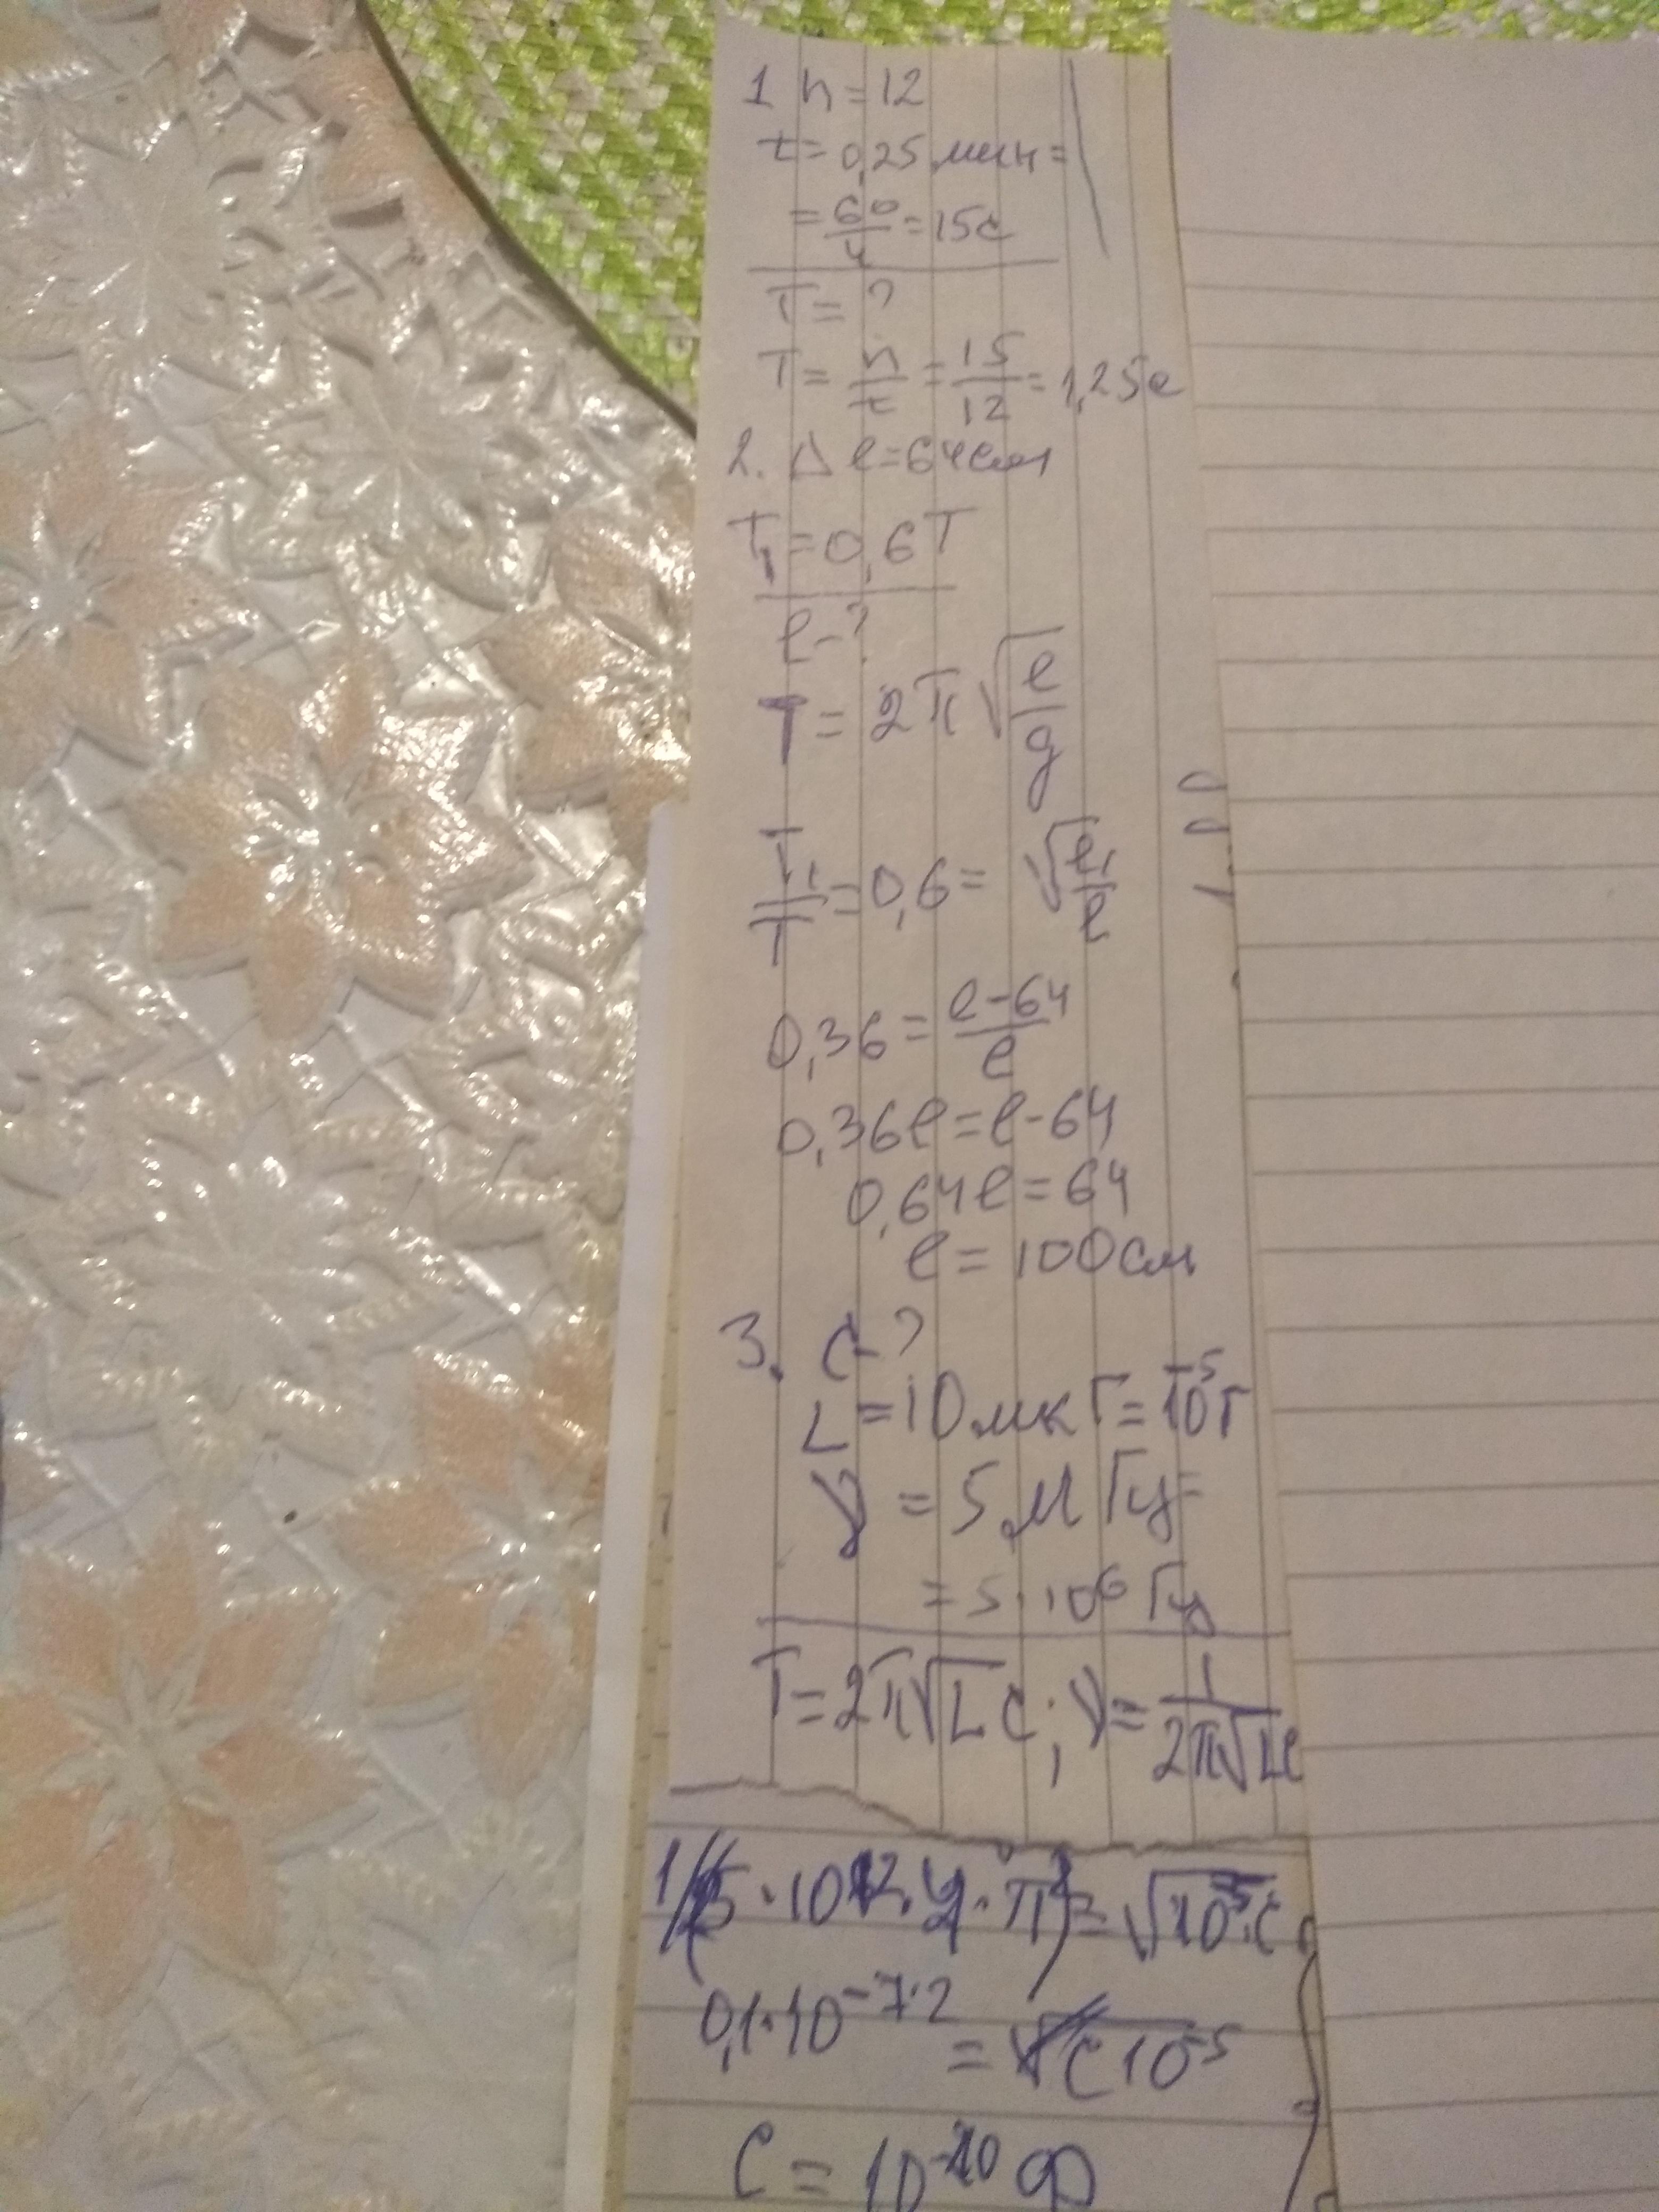 1 n = 12
t = 0,25 мин =
= 60/4 = 15с
T = ?
T = n/t = 15/12 = 1,25с
2. Δ l = 64см
T₁ = 0,6T
l - ?
T = 2π√(l/g)
T₁/T = 0,6 = √(l₁/l)
0,36 = (l-64)/l
0,36l = l-64
0,64l = 64
l = 100см
3. C-?
L = 10 мкГ = 10⁻⁵Г
ν = 5 МГц =
= 5·10⁶ Гц
T = 2π√LC; ν = 1/(2π√LC)
= √10⁻⁵·C
0,1·10⁻⁷·²
= C 10⁻⁵
C = 10⁻¹⁰ Ф